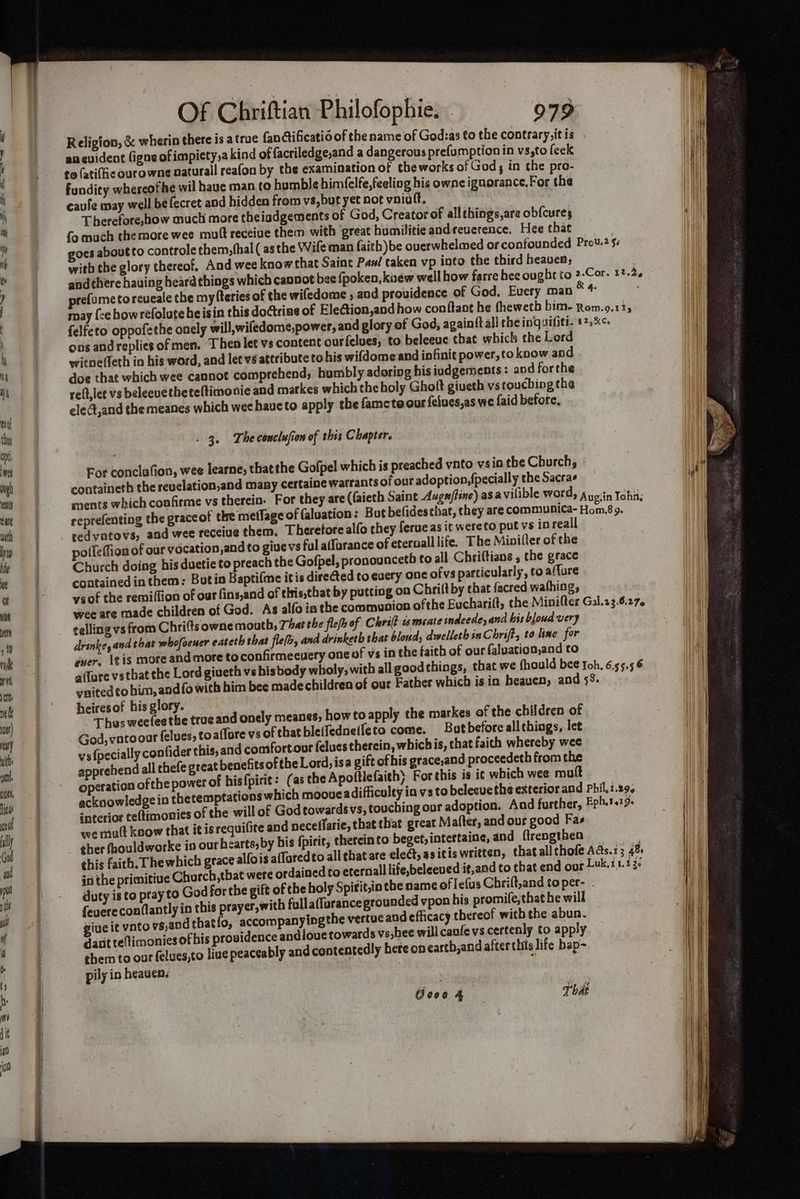 Of Chriſtian Philoſophie. 979
Religion, & wherin there is a true ſanctificatiō of the name of God: as to the contrary, it is
an euident ſigne of impiety, a kind of ſacriledge, and a dangerous preſumption in vs, to ſeek
to ſatisfie our owne naturall reaſon by the examination of the works of God, in the pro-
fundity whereof he wil haue man to humble himſelfe, feeling his owne ignorance. For the
cauſe may well be ſecret and hidden from vs, but yet not vniuſt.
Therefore, how much more the iudgements of God, Creator of all things, are obſcure;
ſo much the more wee muſt receiue them with great humilitie and reuerence. Hee that
goes about to controle them, ſhal (as the Wiſe man ſaith) be ouerwhelmed or confounded Prou.25
with the glory thereof. And wee know that Saint Paul taken vp into the third heauen,
and there hauing heard things which cannot bee ſpoken, knew well how farre hee ought to 2.Cor. 12.2,
preſume to reueale the myſteries of the wiſedome, and prouidence of God. Euery man & 4.
may ſee how reſolute he is in this doctrine of Election, and how conſtant he ſheweth him- Rom.9.11,
ſelfe to oppoſe the onely will, wiſedome, power, and glory of God, againſt all the inquiſiti- 12,&c.
ons and replies of men. Then let vs content our ſelues, to beleeue that which the Lord
witneſſeth in his word, and let vs attribute to his wiſdome and infinit power, to know and
doe that which wee cannot comprehend, humbly adoring his iudgements: and for the
reſt, let vs beleeue the teſtimonie and markes which the holy Ghoſt giueth vs touching the
elect, and the meanes which wee haue to apply the ſame to our ſelues, as we ſaid before.
3. The concluſion of this Chapter.
For concluſion, wee learne, that the Goſpel which is preached vnto vs in the Church,
containeth the reuelation, and many certaine warrants of our adoption, ſpecially the Sacra-
ments which confirme vs therein. For they are (ſaieth Saint Auguſtine) as a viſible word, Aug.in Iohn,
repreſenting the grace of the meſſage of ſaluation: But beſides that, they are communica- Hom.89.
ted vnto vs, and wee receiue them. Therefore alſo they ſerue as it were to put vs in reall
poſſeſſion of our vocation, and to giue vs ful aſſurance of eternall life. The Miniſter of the
Church doing his duetie to preach the Goſpel, pronounceth to all Chriſtians, the grace
contained in them: But in Baptiſme it is directed to euery one of vs particularly, to aſſure
vs of the remiſſion of our ſins, and of this, that by putting on Chriſt by that ſacred waſhing,
wee are made children of God. As alſo in the communion of the Euchariſt, the Miniſter Gal.23.6.27.
telling vs from Chriſts owne mouth, That the fleſh of Chriſt is meate indeede, and his bloud very
drinke, and that whoſoeuer eateth that fleſh, and drinketh that bloud, dwelleth in Chriſt, to liue for
euer. It is more and more to confirme euery one of vs in the faith of our ſaluation, and to
aſſure vs that the Lord giueth vs his body wholy, with all good things, that we ſhould bee Ioh, 6.55.56
vnited to him, and ſo with him bee made children of our Father which is in heauen, and 58.
heires of his glory.
Thus wee ſee the true and onely meanes, how to apply the markes of the children of
God, vnto our ſelues, to aſſure vs of that bleſſedneſſe to come. But before all things, let
vs ſpecially conſider this, and comfort our ſelues therein, which is, that faith whereby wee
apprehend all theſe great benefits of the Lord, is a gift of his grace, and proceedeth from the
operation of the power of his ſpirit: (as the Apoſtle ſaith) For this is it which wee muſt
acknowledge in the temptations which mooue a difficulty in vs to beleeue the exterior and Phil.1.29.
interior teſtimonies of the will of God towards vs, touching our adoption. And further, Eph.1.19.
we muſt know that it is requiſite and neceſſarie, that that great Maſter, and our good Fa-
ther ſhould worke in our hearts, by his ſpirit, therein to beget, intertaine, and ſtrengthen
this faith. The which grace alſo is aſſured to all that are elect, as it is written, that all thoſe Acts.13 48.
in the primitiue Church, that were ordained to eternall life, beleeued it, and to that end our Luk.11.13.
duty is to pray to God for the gift of the holy Spirit, in the name of Ieſus Chriſt, and to per-
ſeuere conſtantly in this prayer, with full aſſurance grounded vpon his promiſe, that he will
giue it vnto vs, and that ſo, accompanying the vertue and efficacy thereof with the abun-
dant teſtimonies of his prouidence and loue towards vs, hee will cauſe vs certenly to apply
them to our ſelues, to liue peaceably and contentedly here on earth, and after this life hap-
pily in heauen.
Oooo 4 That